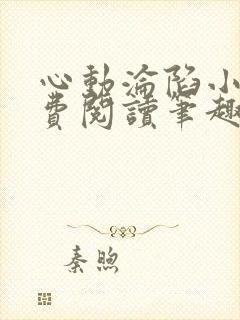 心動淪陷小
費閱讀筆趣
秦煦